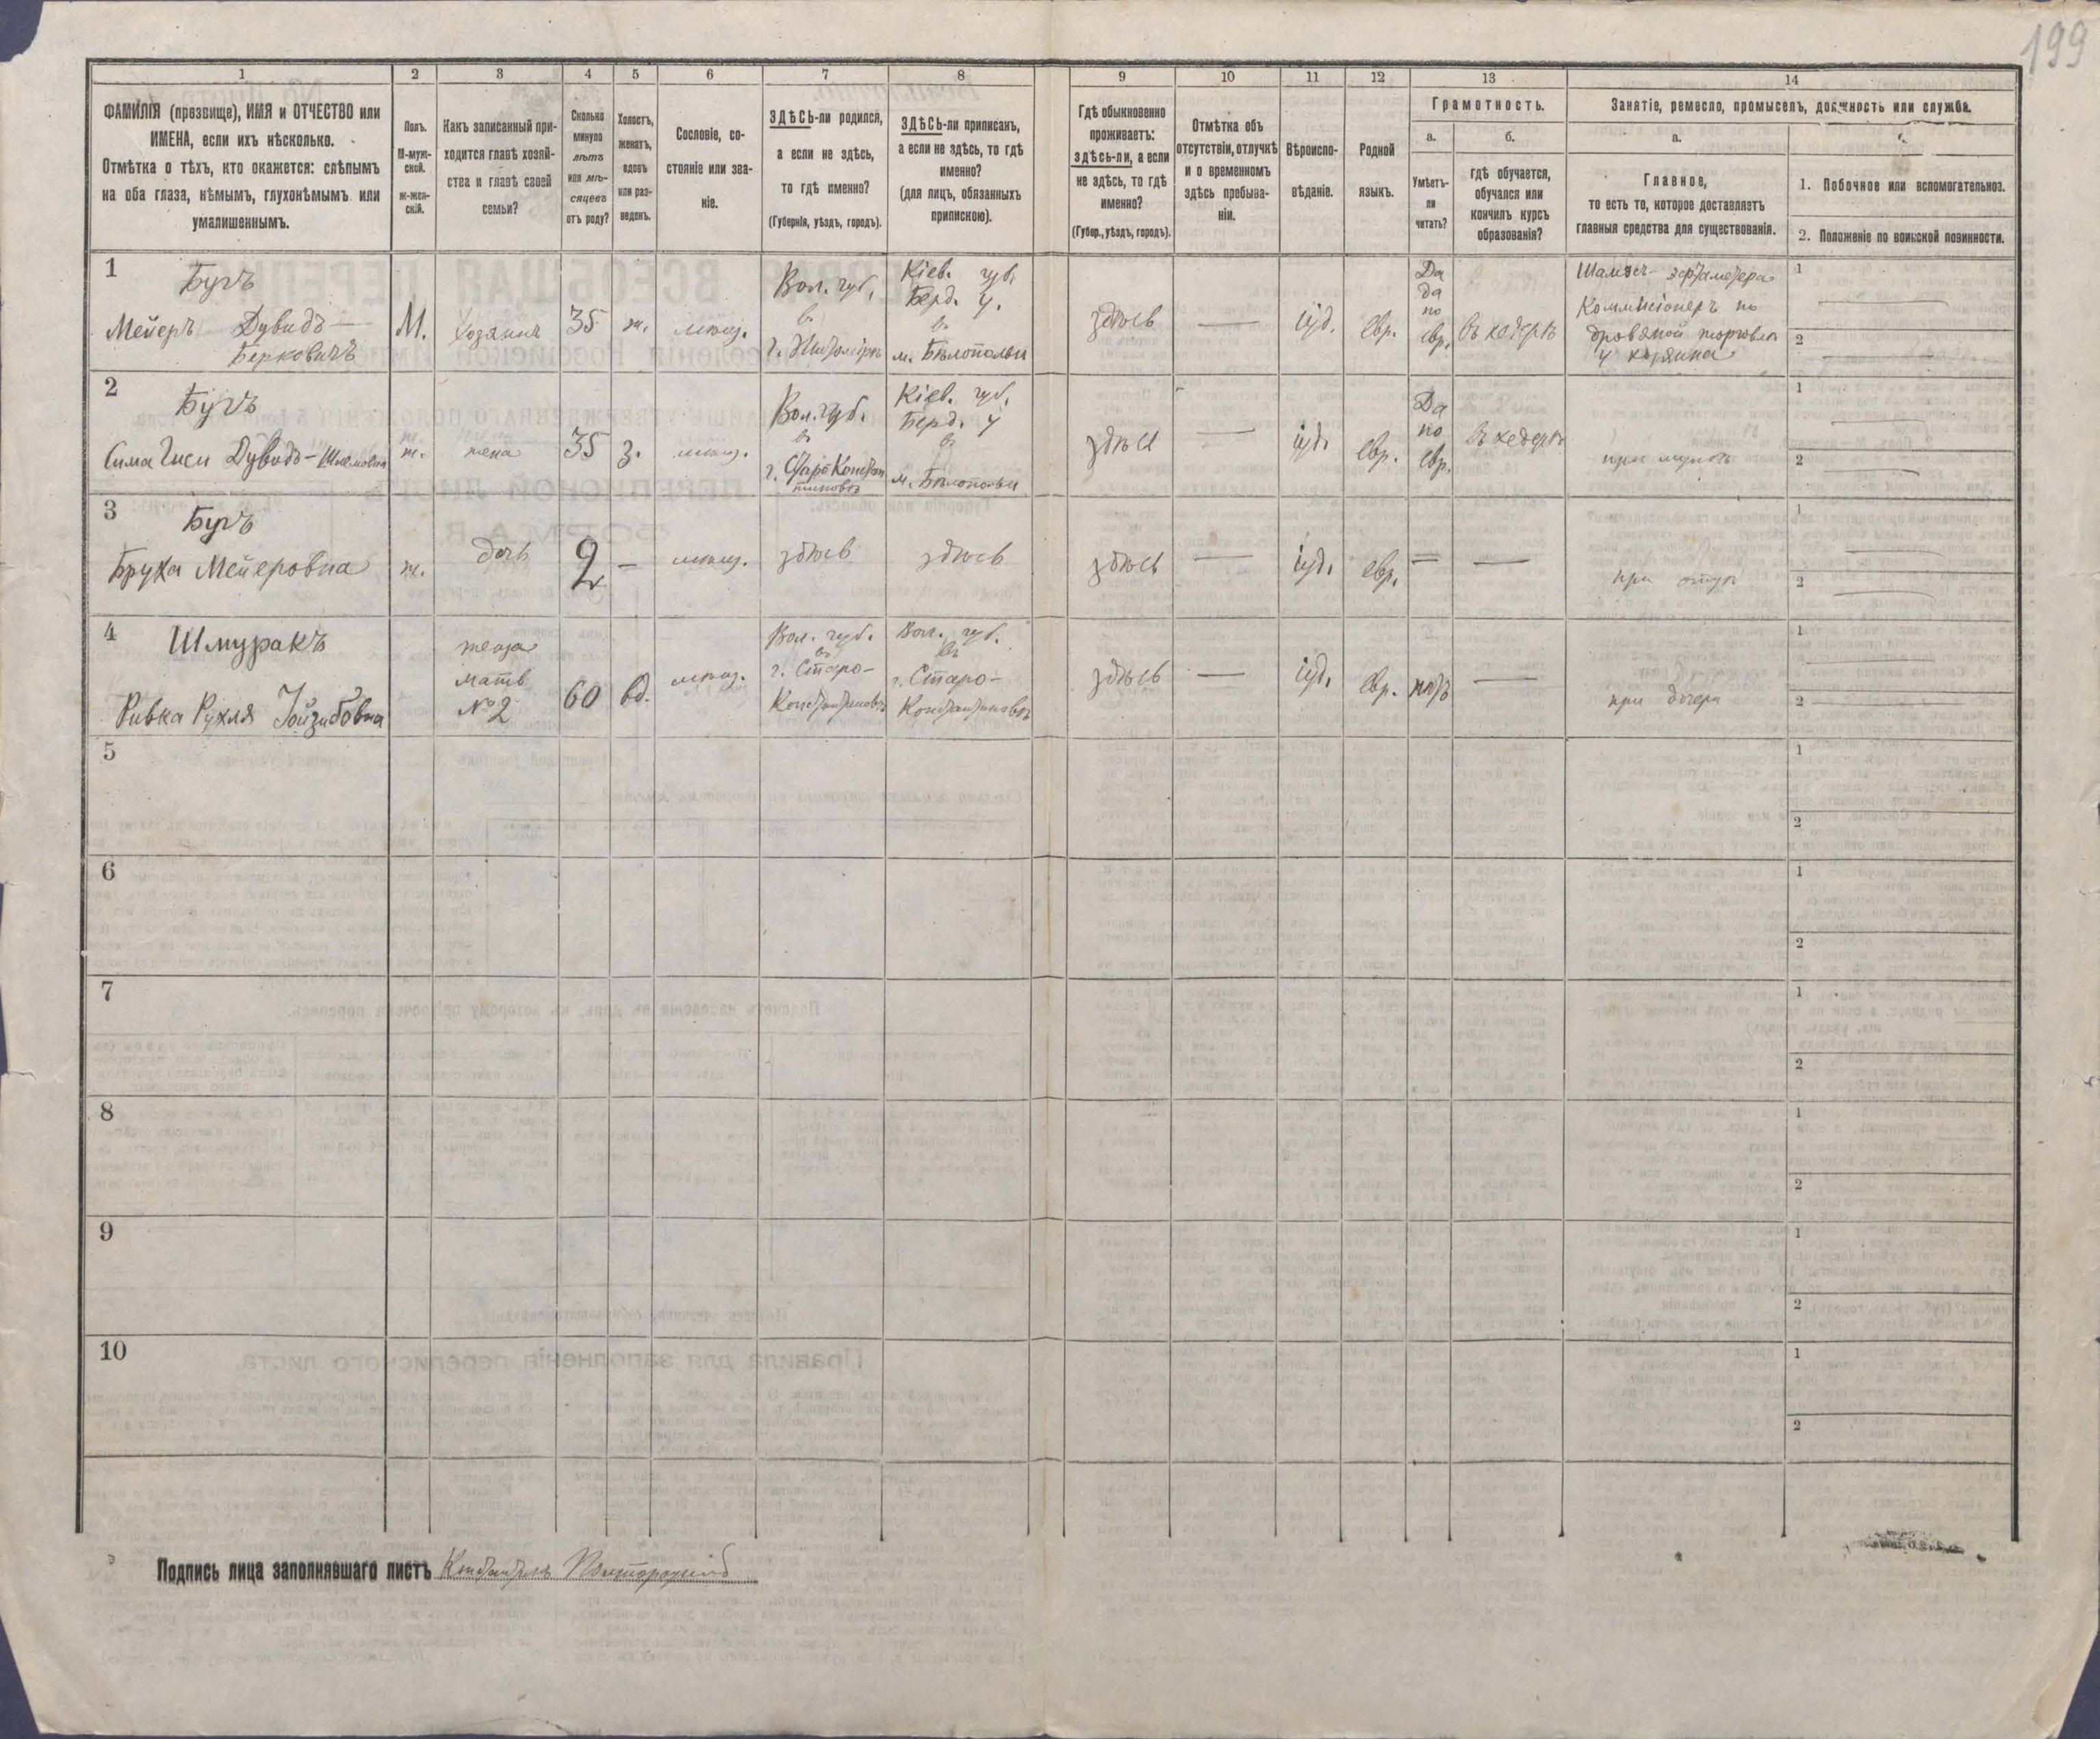 199
1
2
3
4
5
6
7
8
9
10
11
12
13
14
ФАМИЛІЯ (прозвище), ИМЯ и ОТЧЕСТВО или
ИМЕНА, если ихъ нѣсколько.
Отмѣтка о тѣхъ, кто окажется: слѣпымъ
на оба глаза, нѣмымъ, глухонѣмымъ или
умалишеннымъ.
Полъ.
М-муж-
ской.
ж-жен-
скій.
Какъ записанный при-
ходится главѣ хозяй-
ства и главѣ своей
семьи?
Сколько
минуло
лѣтъ
или мѣ-
сяцевъ
отъ роду?
Холостъ,
женатъ,
вдовъ
или раз-
веденъ.
Сословіе, со-
стояніе или зва-
ніе.
ЗДѢСЬ-ли родился,
а если не здѣсь,
то гдѣ именно?
(Губернія, уѣздъ, городъ).
ЗДѢСЬ-ли приписанъ,
а если не здѣсь, то гдѣ
именно?
(для лицъ, обязанныхъ
припискою).
Гдѣ обыкновенно
проживаетъ:
здѣсь-ли, а если
не здѣсь, то гдѣ
именно?
(Губер., уѣздъ, городъ).
Отмѣтка объ
отсутствіи, отлучкѣ
и о временномъ
здѣсь пребыва-
ніи.
Вѣроиспо-
вѣданіе.
Родной
языкъ.
Грамотность.
а.
Умѣетъ-
ли
читать?
б.
гдѣ обучается,
обучался или
кончилъ курсъ
образованія?
Занятіе, ремесло, промыселъ, должность или служба.
а.
Главное,
то есть то, которое доставляетъ
главныя средства для существованія.
1. Побочное или вспомогательное.
2. Положеніе по воинской повинности.
1
Бугъ
Мейеръ Дувидъ —
Берковичъ
М.
хозяинъ
35
ж.
мѣщ.
Вол. губ.
въ
г. Житомірѣ
Кіев. губ.
Берд. у.
въ
м. Бѣлополье
здѣсь
—
іуд.
евр.
Да
да
по
евр.
въ хедерѣ
Коммисіонеръ по
дровяной торговлѣ
у хозяина
1
2
2
Бугъ
Сима Гиси Дувидъ-Шлемовна
ж.
жена
35
з.
мѣщ.
Вол. губ.
въ
г. Старо Констан
тиновѣ
Кіев. губ.
Берд. у
въ
м. Бѣлополье
здѣсь
—
іуд.
евр.
Да
по
евр.
въ хедерѣ
при мужѣ
1
2
3
Бугъ
Бруха Мейеровна
ж.
дочь
2
—
мѣщ.
здѣсь
здѣсь
здѣсь
—
іуд.
евр.
—
—
при отцѣ
1
2
4
Шмуракъ
Ривка Рухля Іойзибовна
мать
№ 2
60
вд.
мѣщ.
Вол. губ.
въ
г. Старо-
Константиновѣ
Вол. губ.
въ
г. Старо-
Константиновѣ
здѣсь
—
іуд.
евр.
нѣтъ
—
при дочери
1
2
5
1
2
6
1
2
7
1
2
8
1
2
9
1
2
10
1
2
Подпись лица заполнявшаго листъ